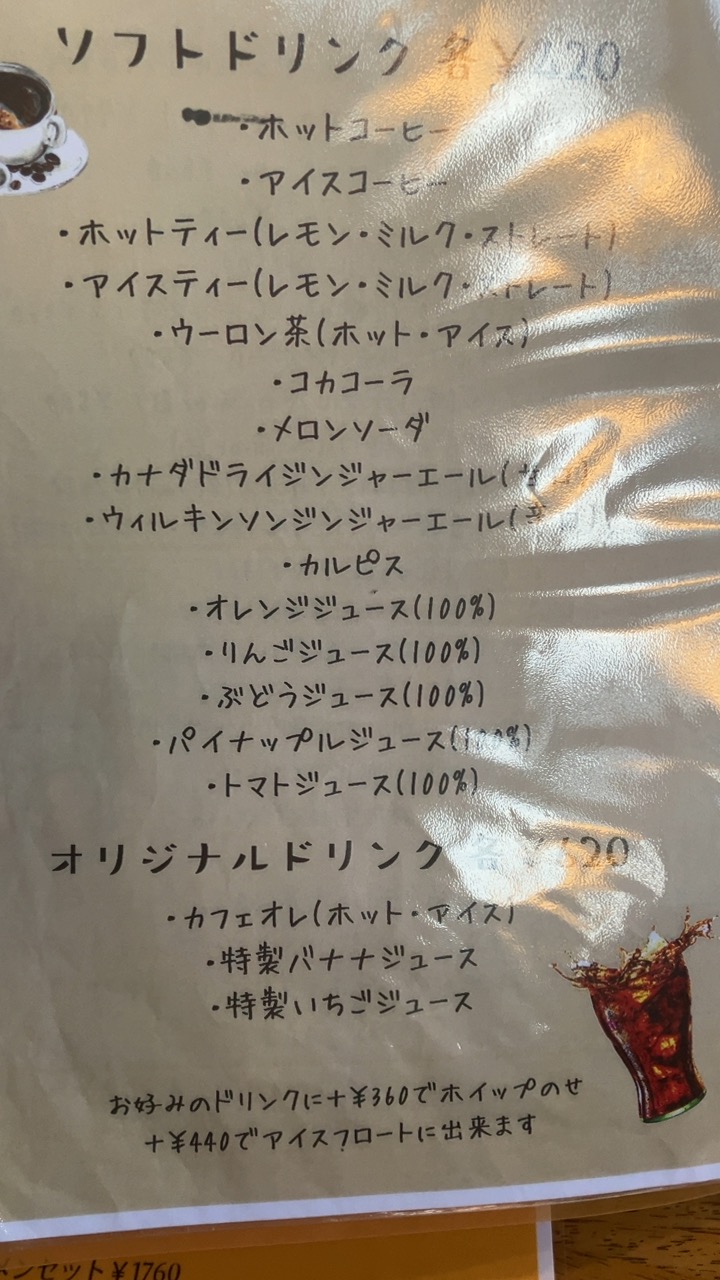 ソフトドリンク 各￥420
・ホットコーヒー
・アイスコーヒー
・ホットティー(レモン・ミルク・ストレート)
・アイスティー(レモン・ミルク・ストレート)
・ウーロン茶(ホット・アイス)
・コカコーラ
・メロンソーダ
・カナダドライジンジャーエール(甘口)
・ウィルキンソンジンジャーエール(辛口)
・カルピス
・オレンジジュース(100%)
・りんごジュース(100%)
・ぶどうジュース(100%)
・パイナップルジュース(100%)
・トマトジュース(100%)
オリジナルドリンク
・カフェオレ(ホット・アイス)
・特製バナナジュース
・特製いちごジュース
お好みのドリンクに+￥360でホイップのせ
+￥440でアイスフロートに出来ます
セット￥1760